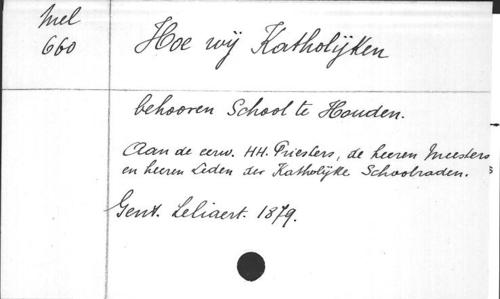 Mel
660
Hoe wij Katholijken
behooren School te Houden.
Aan de eerw. HH. Priesters, de heeren Meesters
en heeren Leden der Katholijke Schoolraden.
Gent. Leliaert. 1879.